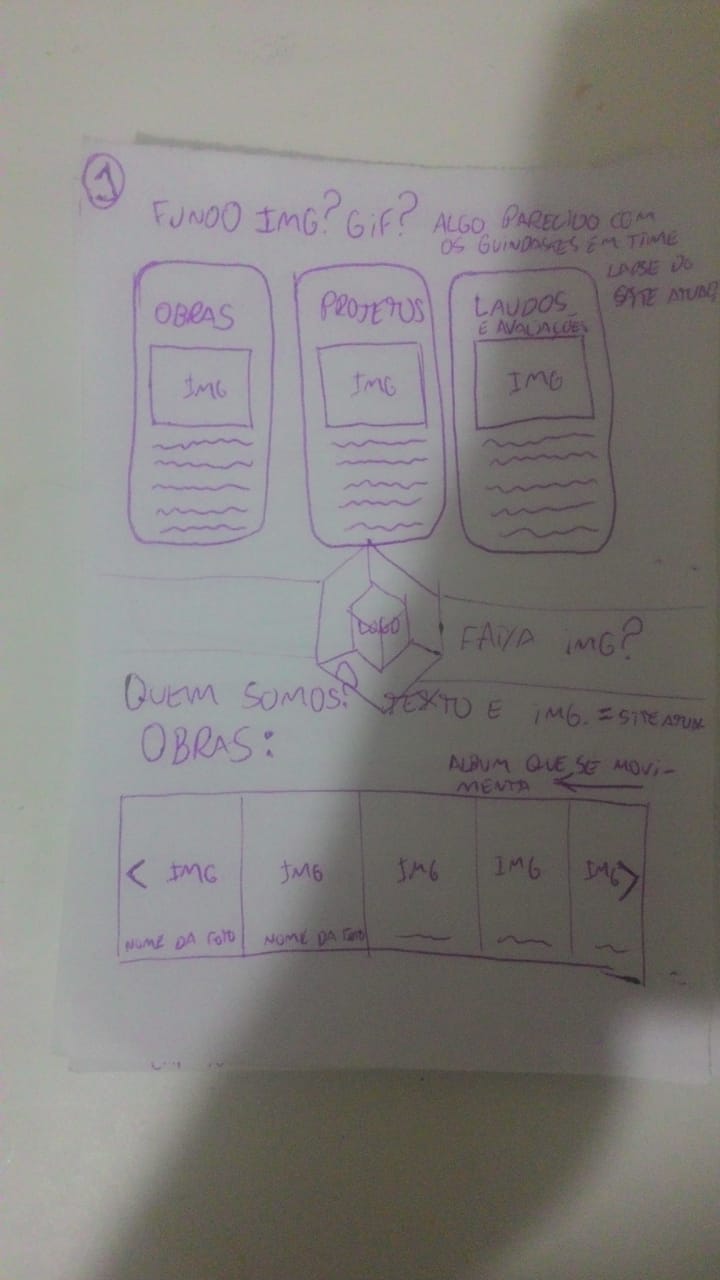 1
FUNDO IMG? GIF? ALGO PARECIDO COM
OS GUINDASTES EM TIME
LAPSE DO
SITE ATUAL
OBRAS
PROJETOS
LAUDOS
E AVALIAÇÕES
IMG
IMG
IMG
LOGO
FAIXA IMG?
QUEM SOMOS? TEXTO E IMG. = SITE ATUAL
OBRAS:
ALBUM QUE SE MOVI-
MENTA
< IMG
IMG
IMG
IMG
IMG >
NOME DA FOTO
NOME DA FOTO